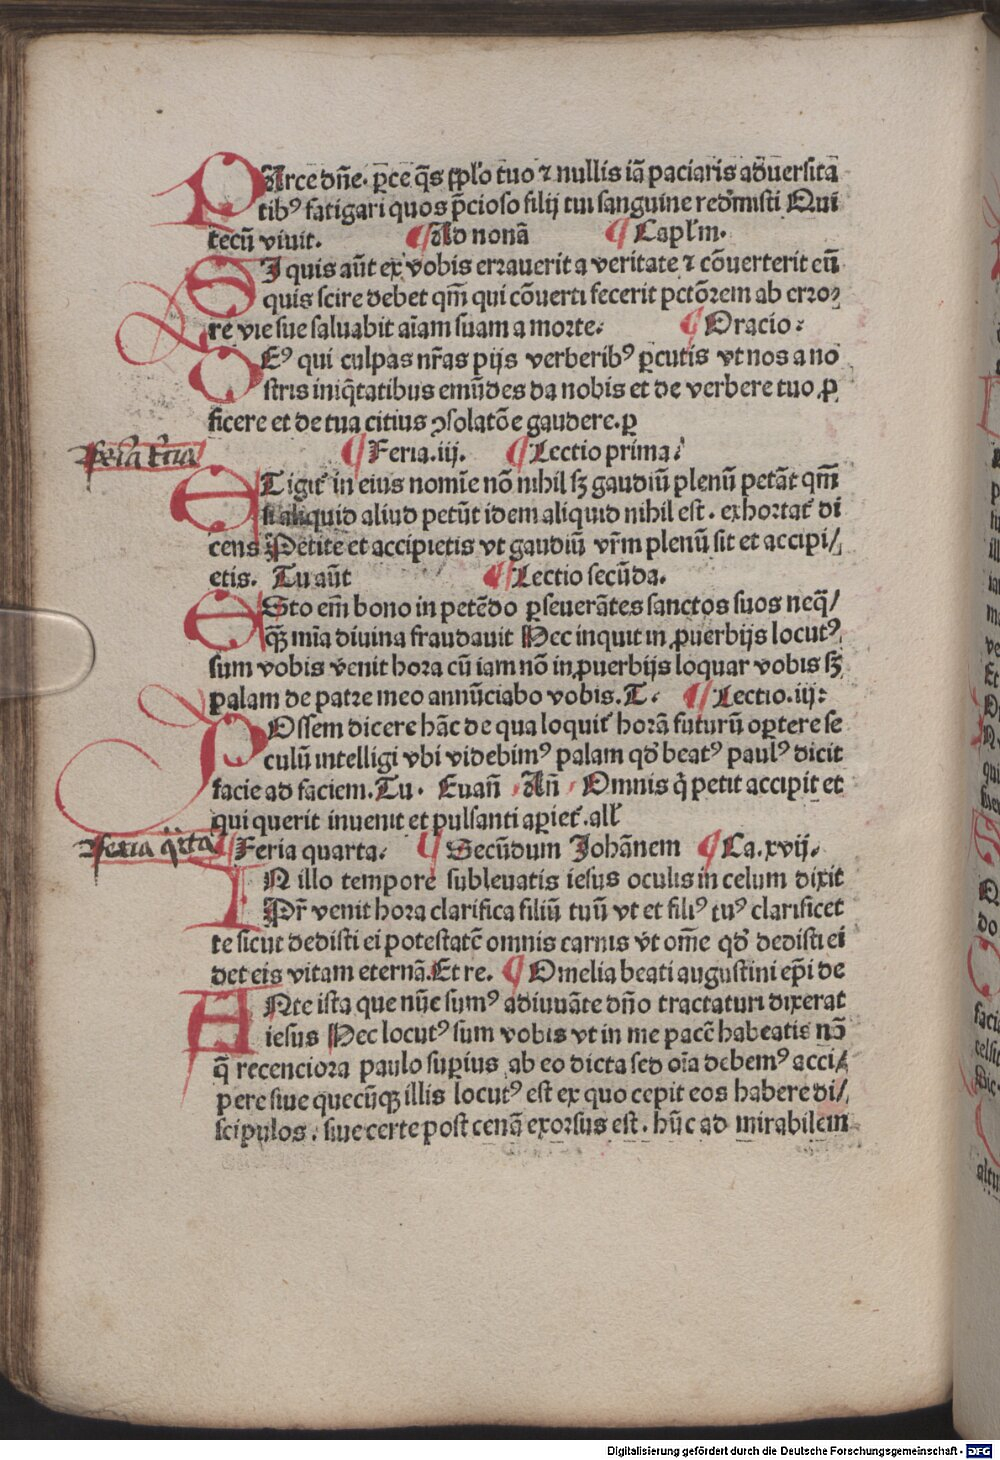 PArce dñe. ꝑce q̃s ꝓpl'o tuo ⁊ nullis iã paciaris aduersita
tibꝰ fatigari quos p̃cioso filij tui sanguine red'misti Qui
tecũ viuit. ¶ Ad nonã ¶ Capl'm.
SI quis aũt ex vobis errauerit a veritate ⁊ cõuerterit eũ
quis scire debet qm̃ qui cõuerti fecerit pctõrem ab erro⸗
re vie sue saluabit aĩam suam a morte. ¶ Oracio:
DEꝰ qui culpas nr̃as pijs verberibꝰ ꝑcutis vt nos a no
stris iniq̃tatibus emũdes da nobis et de verbere tuo ꝓ
ficere et de tua citius ꝯsolatõe gaudere. ꝑ
Feria tr̃cia
¶ Feria .iij. ¶ Lectio prima:
ETigit̃ in eius nomĩe nõ nihil sꝫ gaudiũ plenũ petãt qm̃
si aliquid aliud petũt idem aliquid nihil est. exhortat̃ di
cens Petite et accipietis vt gaudiũ vr̃m plenũ sit et accipi/
etis. Tu aũt ¶ Lectio secũda.
ESto em̃ bono in petẽdo ꝑseuerãtes sanctos suos neq̃/
q̃ꝫ mĩa diuina fraudauit Hec inquit in ꝓuerbijs locutꝰ
sum vobis venit hora cũ iam nõ in ꝓuerbijs loquar vobis sꝫ
palam de patre meo annũciabo vobis. T. ¶ Lectio .iij:
POssem dicere hãc de qua loquit̃ horã futurũ oꝑtere se
culũ intelligi vbi videbimꝰ palam qd' beatꝰ paulꝰ dicit
facie ad faciem. Tu. Euañ Añ Omnis q̃ petit accipit et
qui querit inuenit et pulsanti aꝑiet̃. all'
Feria q̃rta
¶ Feria quarta. ¶ Secũdum Johãnem ¶ Ca. xvij.
IN illo tempore subleuatis iesus oculis in celum dixit
Pr̃ venit hora clarifica filiũ tuũ vt et filiꝰ tuꝰ clarificet
te sicut dedisti ei potestatẽ omnis carnis vt om̃e qd' dedisti ei
det eis vitam eternã. Et re. ¶ Omelia beati augustini ep̃i de
ANte ista que nũc sumꝰ adiuuãte dño tractaturi dixerat
iesus Hec locutꝰ sum vobis vt in me pacẽ habeatis nõ
q̃ recenciora paulo suꝑius ab eo dicta sed oĩa debemꝰ acci/
pere siue quecũqꝫ illis locutꝰ est ex quo cepit eos habere di/
scipulos. siue certe post cenã exorsus est. hũc ad mirabilem
Digitalisierung gefördert durch die Deutsche Forschungsgemeinschaft - DFG